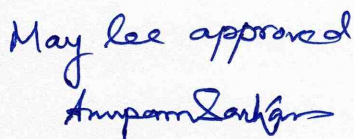 May be approved
Anupam Sarkar